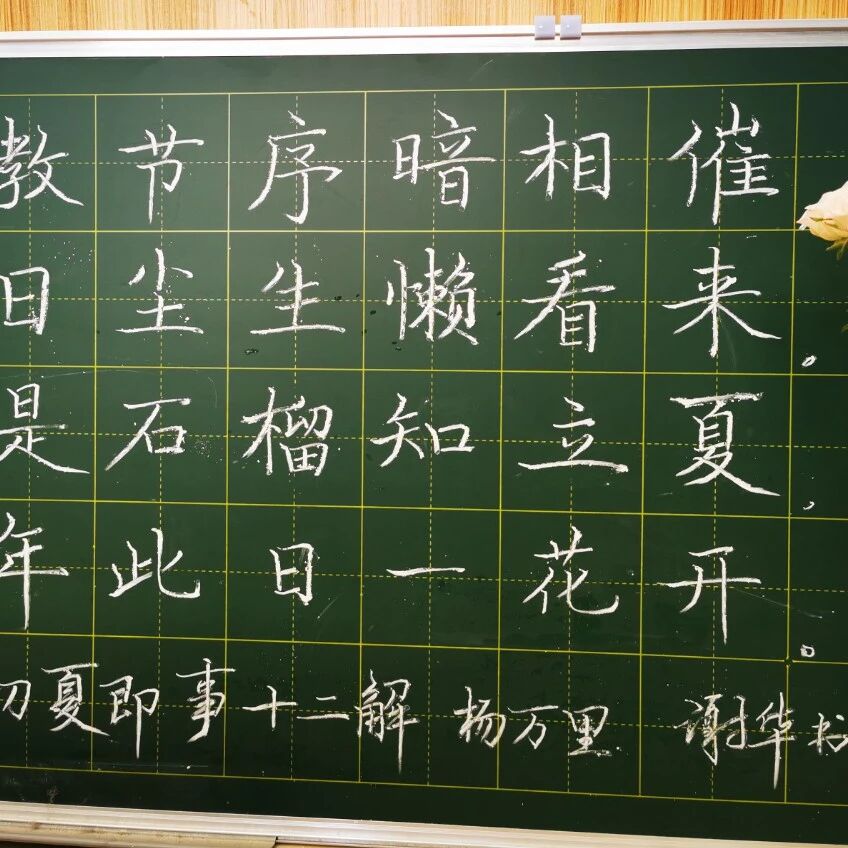 教节序暗相催
日尘生懒看来。
是石榴知立夏，
年此日一花开。
初夏即事十二解 杨万里 谢华书